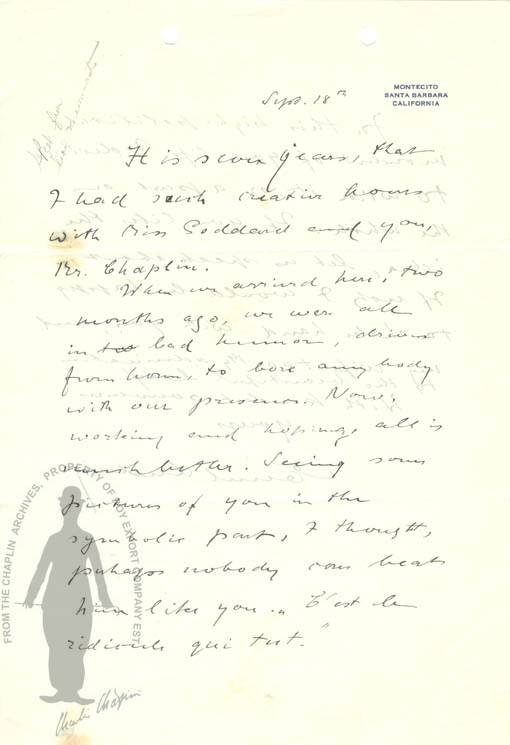 MONTECITO
SANTA BARBARA
CALIFORNIA
Sept. 18th
It is seven years, that
I had such creative hours
with Miss Goddard and you,
Mr. Chaplin.
When we arrived here, two
months ago, we were all
in too bad humor, driven
from home, to bore anybody
with our presence. Now,
working and hoping, all is
much better. Seeing some
pictures of you in the
symbolic part, I thought,
perhaps nobody can beat
him like you. „C'est le
ridicule qui tue."
FROM THE CHAPLIN ARCHIVES, PROPERTY OF ROY EXPORT COMPANY EST.
Charlie Chaplin